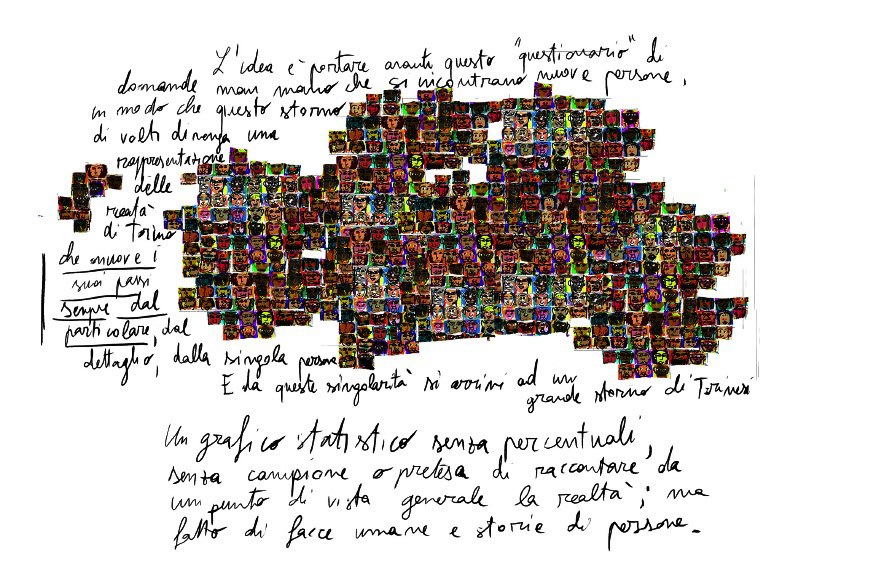 L'idea è portare avanti questo "questionario" di
domande man mano che si incontrano nuove persone,
in modo che questo stormo
di volti divenga una
rappresentazione
delle
realtà
di Torino
che muove i
suoi passi
sempre dal
particolare, dal
dettaglio, dalla singola persona
E da queste singolarità si arrivi ad un
grande stormo di Torinesi
Un grafico statistico senza percentuali,
senza campione o pretesa di raccontare da
un punto di vista generale la realtà; ma
fatto di facce umane e storie di persone.